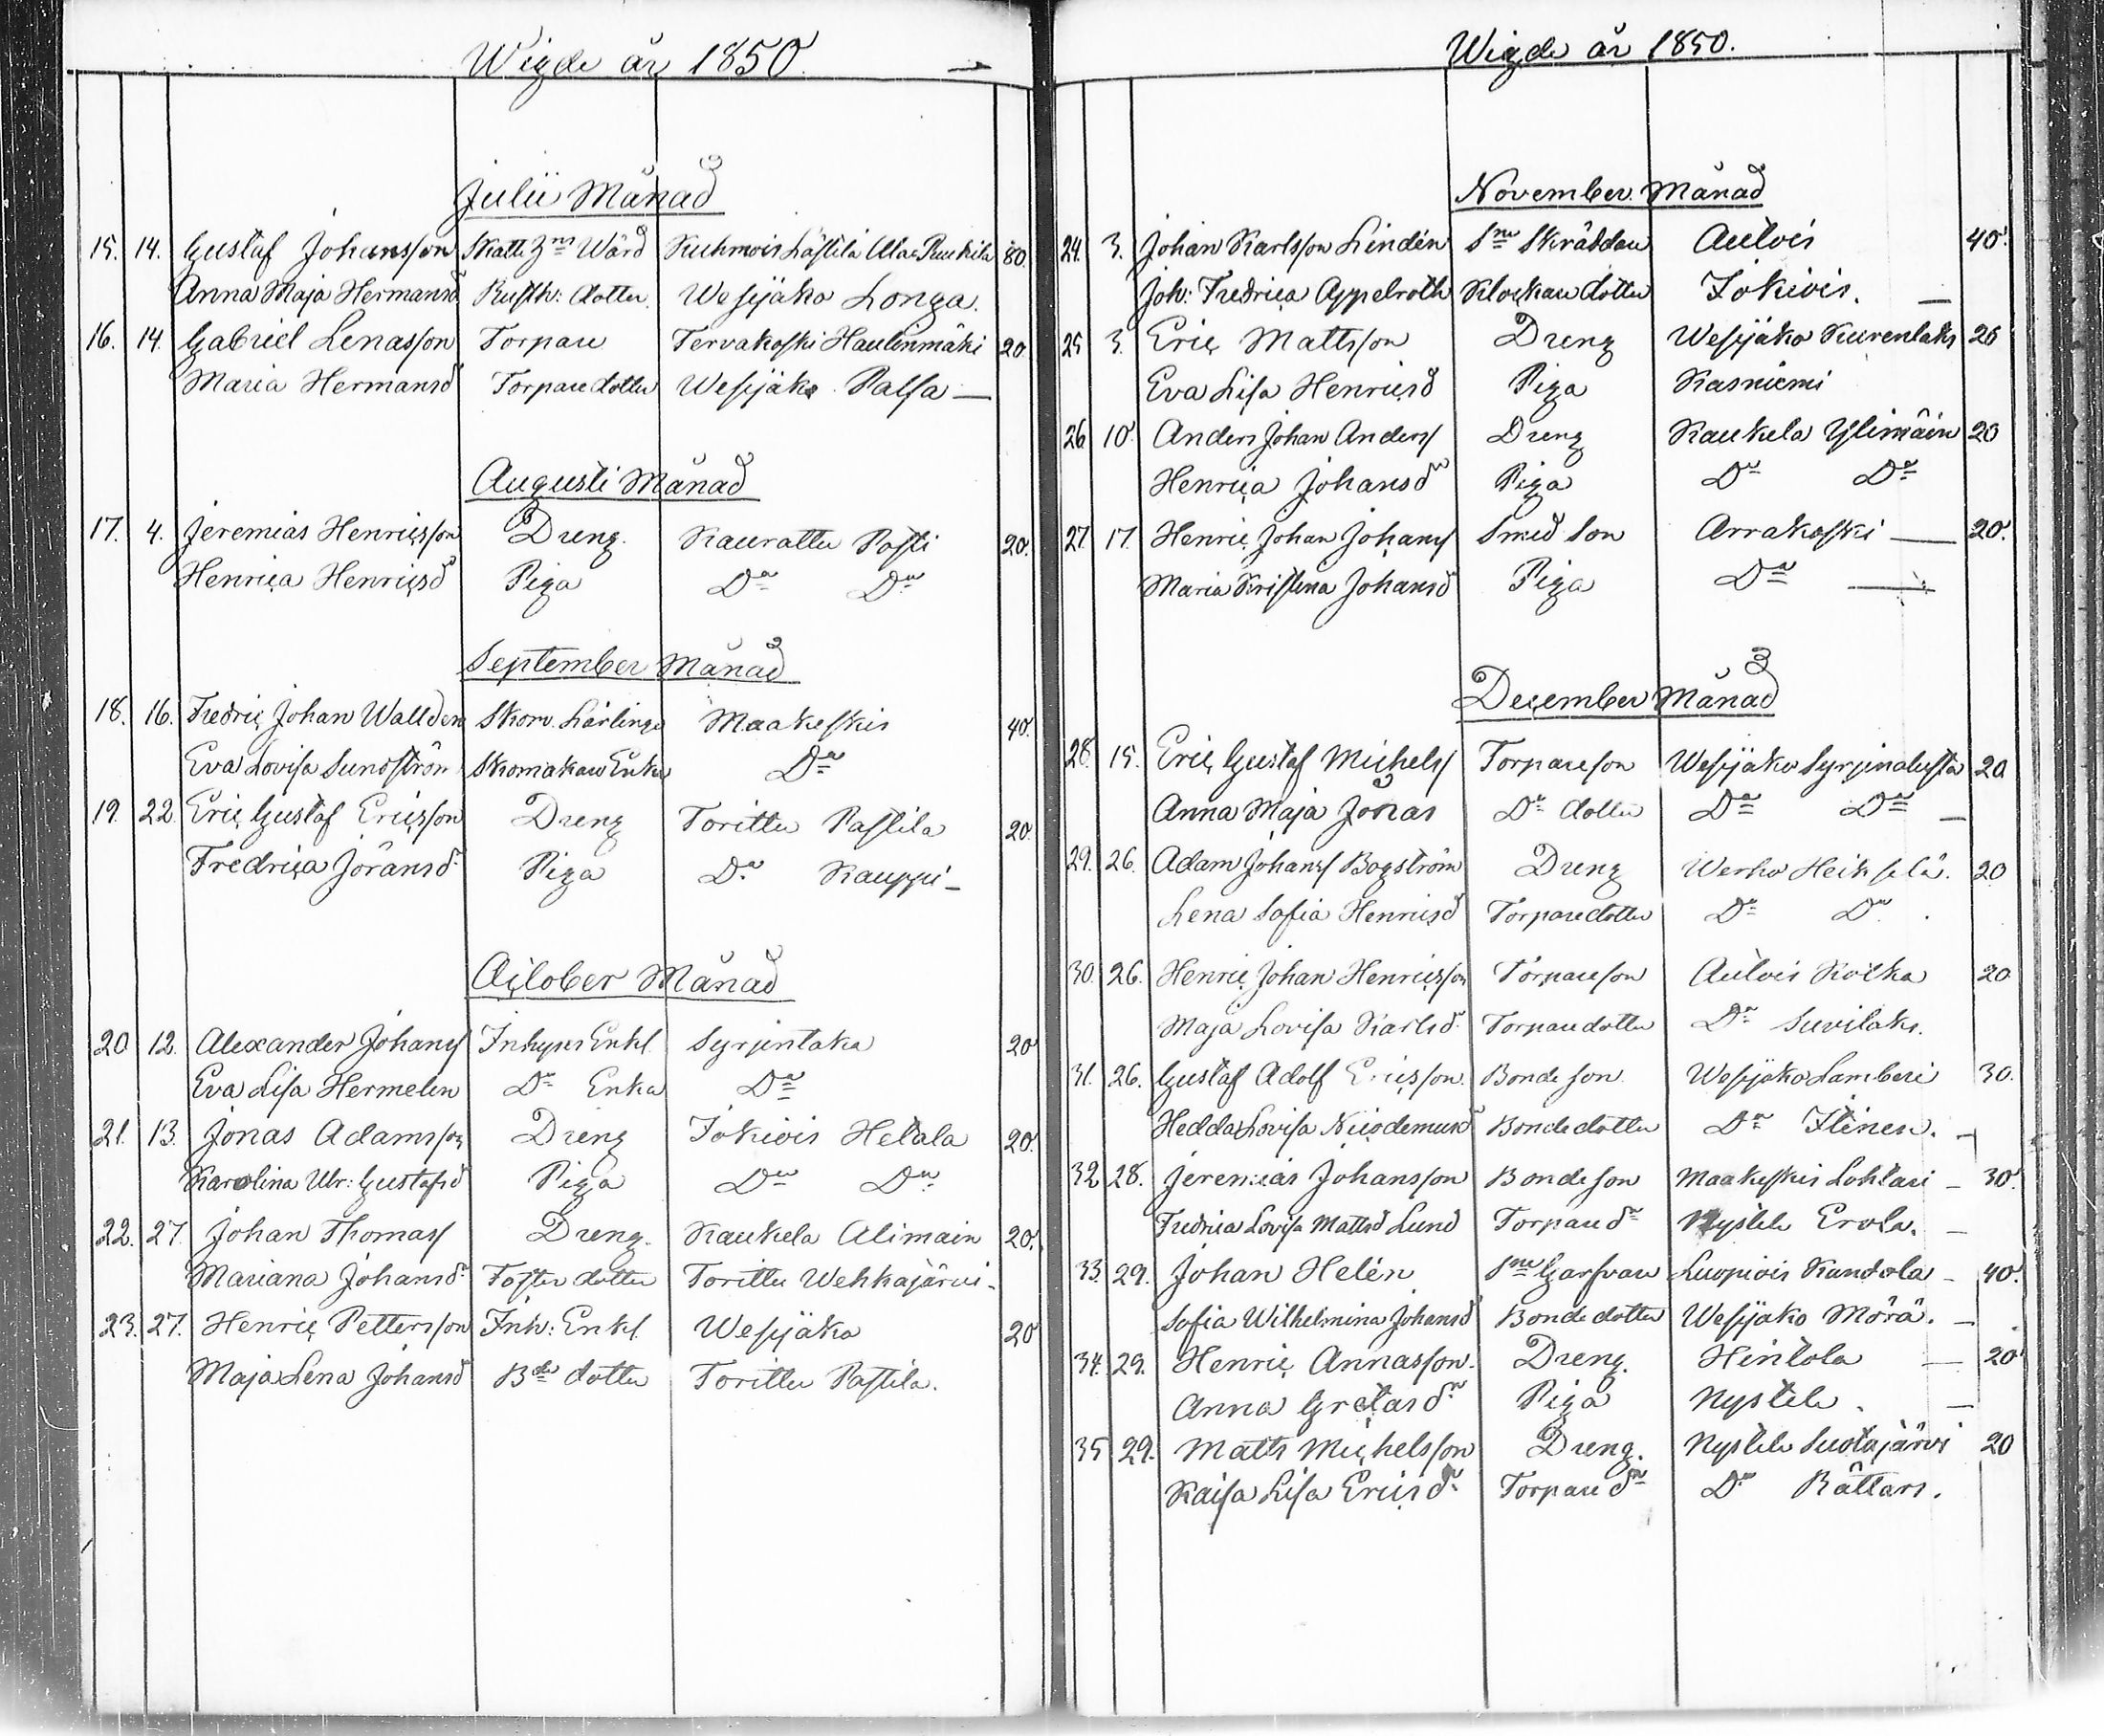 Wigde år 1850
Julii Månad
15. 14. Gustaf Johansson Skatte Bns Wärd Kuhmois Lästilä Ala Ruukila 80.
Anna Maja Hermansd Rusth: dotter Wesijako Longa.
16. 14. Gabriel Lenasson Torpare Tervakoski Haulinmäki 20
Maria Hermansd Torpare dotter Wesijako Palsa —
Augusti Månad
17. 4. Jeremias Henricsson Dreng. Kaurattu Posti 20.
Henrica Henricsd Piga Do Do
September Månad
18. 16. Fredric Johan Wallden Skom. Lärlinge Maakeskis 40.
Eva Lovisa Sundström Skomakare Enka Do
19. 22. Eric Gustaf Ericsson Dreng Torittu Pastila 20
Fredrica Jöransd Piga Do Kauppi —
October Månad
20 12. Alexander Johans Inhyses Enkl Syrjintaka 20
Eva Lisa Hermelen Do Enka Do
21. 13. Jonas Adamsson Dreng Jokiois Hetala 20.
Karolina Ulr: Gustafsd Piga Do Do
22. 27. Johan Thomass Dreng. Kaukela Alimain 20.
Mariana Johansd Foster dotter Torittu Wehkajärvi —
23. 27. Henric Pettersson Inh: Enkl Wesijako 20
Maja Lena Johansd Bde dotter Torittu Pastila.
Wigde år 1850.
November Månad
24. 3. Johan Karlsson Lindén Sne Skräddare Autois 40.
Joh: Fredrica Appelroth Klockare dotter Jokiois. —
25 3. Eric Mattsson Dreng Wesijako Kurenlaks 20
Eva Lisa Henricsd Piga Kasniemi
26 10. Anders Johan Anders Dreng Kaukela Ylimäin 20
Henrica Johansd Piga Do Do
27. 17. Henric Johan Johans Smed Son Arrakoski — 20.
Maria Kristina Johansd Piga Do —
December Månad
28. 15. Eric Gustaf Michels Torpareson Wesijako Syrjinalusta 20
Anna Maja Jonas Do dotter Do Do —
29. 26. Adam Johans Bogström Dreng Werho Heikkilä. 20
Lena Sofia Henricsd Torparedotter Do Do.
30. 26. Henric Johan Henricsson Torpareson Autois Kotka 20
Maja Lovisa Karlsd. Torparedotter Do Suvilaks.
31. 26. Gustaf Adolf Ericsson. Bonde son Wesijako Lamberi 30.
Hedda Lovisa Nicodemusd Bondedotter Do Ilinen. —
32 28. Jeremias Johansson Bondeson Maakeskis Lohtari — 30.
Fredrica Lovisa Mattsd Lund Torpare dr Nystele Erola. —
33. 29. Johan Helén Sne Garfvare Luopiois Kandola — 40.
Sofia Wilhelmina Johansd Bonde dotter Wesijako Mörä. —
34. 29. Henric Annasson. Dreng. Hintola — 20
Anna Gretasdr Piga Nystele. —
35 29. Matts Michelsson Dreng. Nystele Suotajärvi 20
Kaisa Lisa Ericsd. Torpare dr Do Rättars.